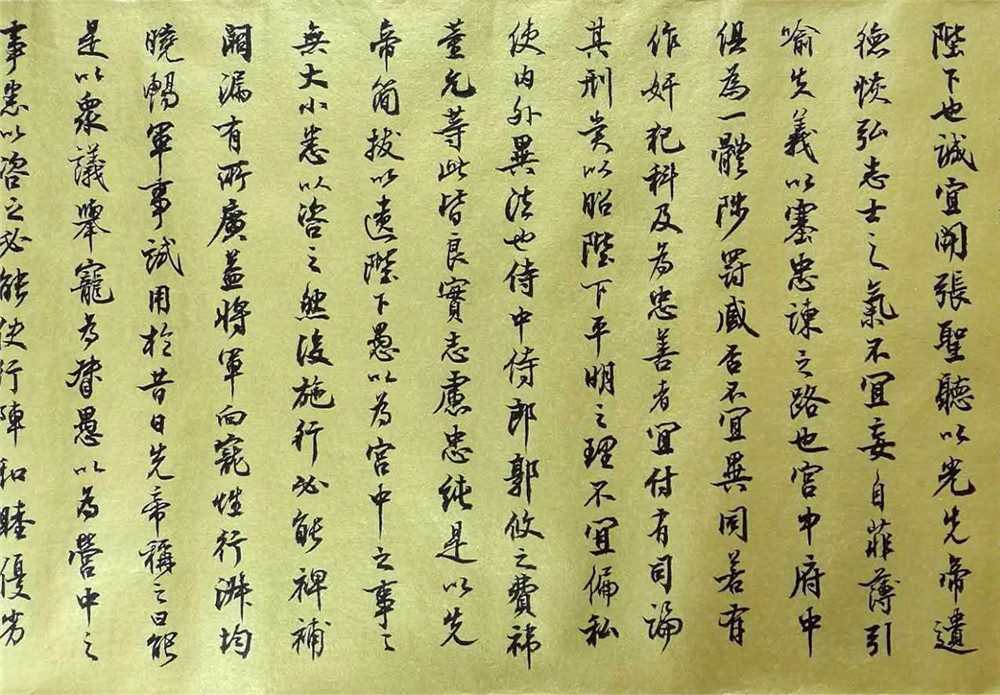 陛下也誠宜開張聖聽以光先帝遺
德恢弘志士之氣不宜妄自菲薄引
喻失義以塞忠諫之路也宮中府中
俱為一體陟罰臧否不宜異同若有
作奸犯科及為忠善者宜付有司論
其刑賞以昭陛下平明之理不宜偏私
使內外異法也侍中侍郎郭攸之費禕
董允等此皆良實志慮忠純是以先
帝簡拔以遺陛下愚以為宮中之事々
無大小悉以咨之然後施行必能裨補
闕漏有所廣益將軍向寵性行淑均
曉暢軍事試用於昔日先帝稱之曰能
是以眾議舉寵為督愚以為營中之
事悉以咨之必能使行陣和睦優劣